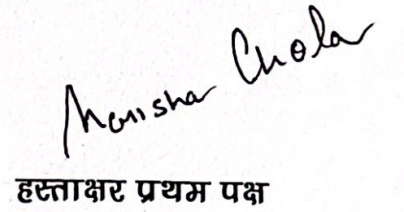 Manisha Chola
हस्ताक्षर प्रथम पक्ष